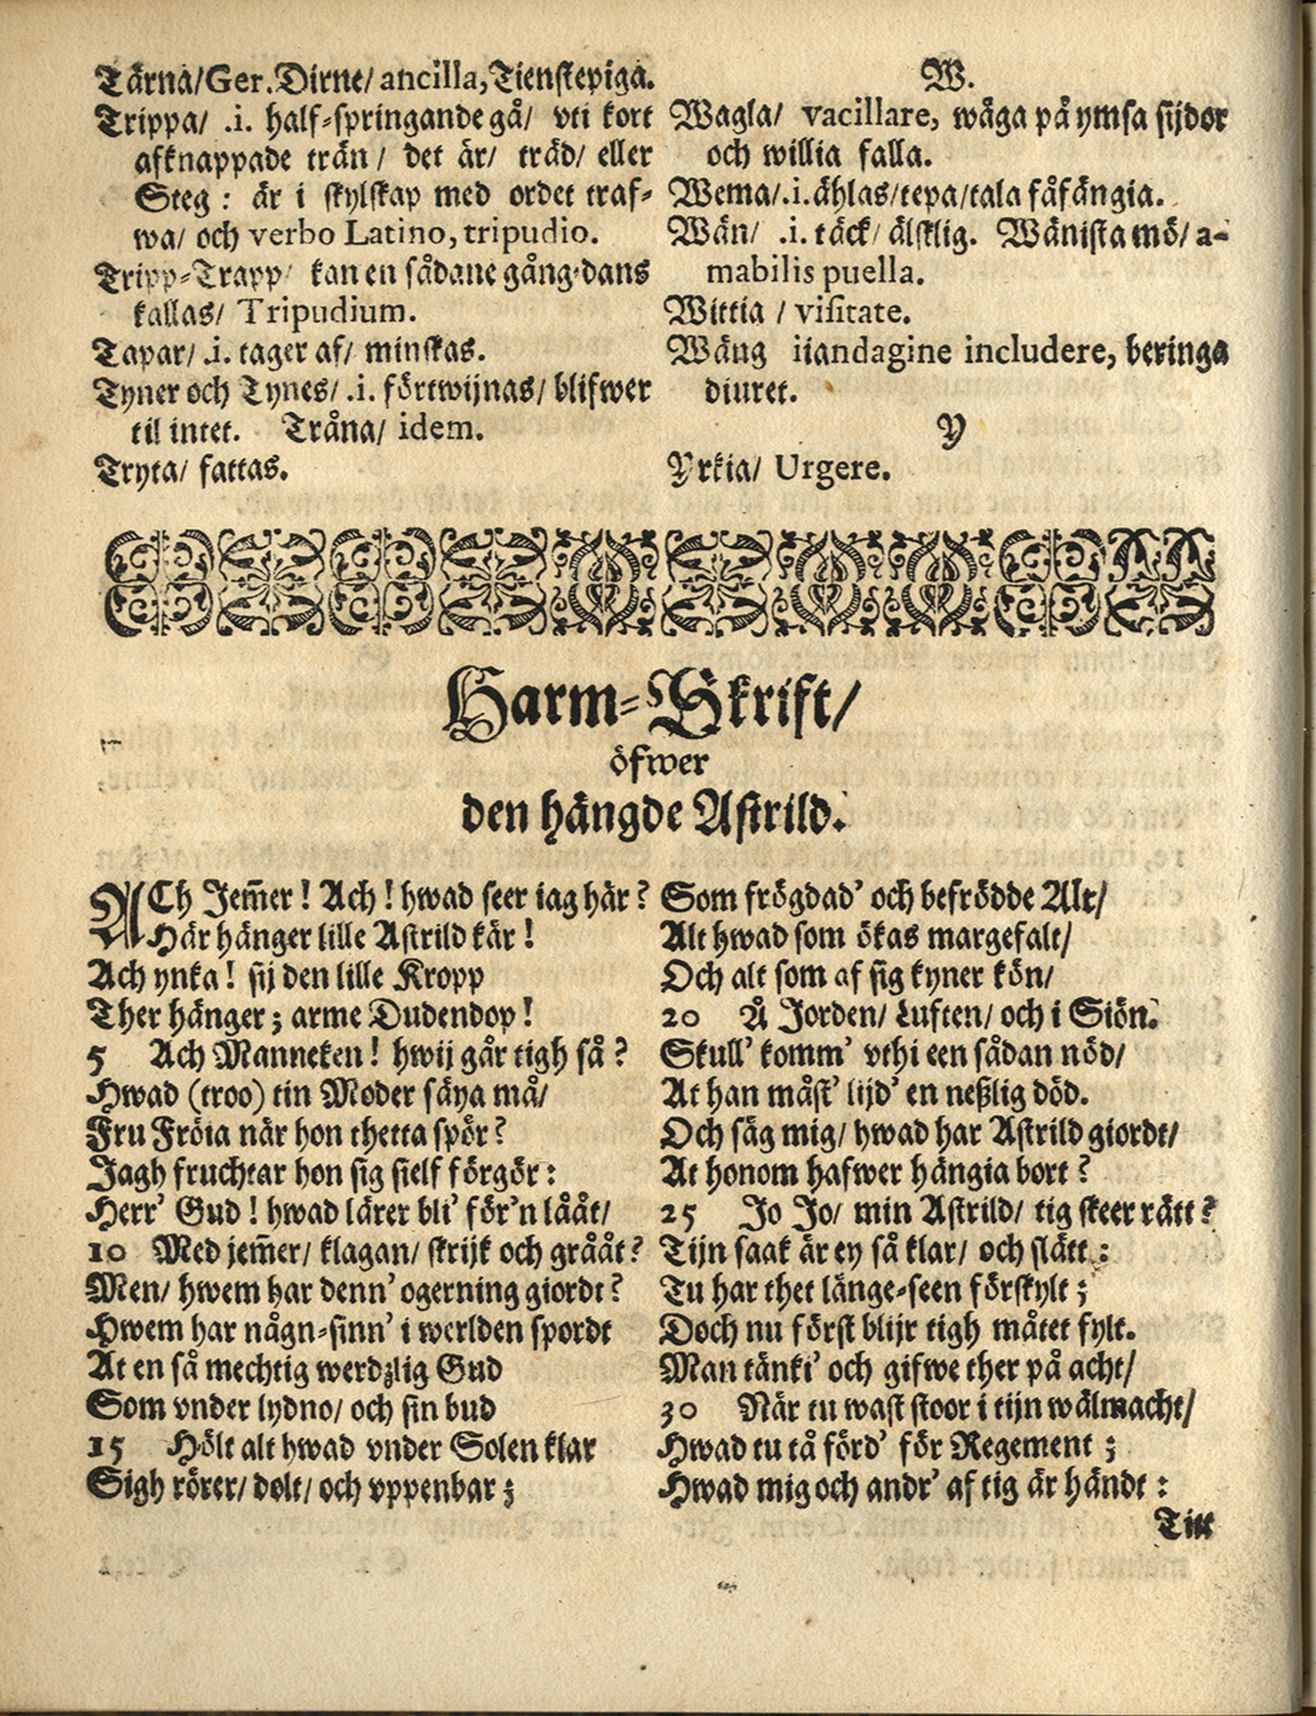 Tärna/ Ger. Dirne/ ancilla, Tienstepiga.
Trippa/ .i. half-springande gå/ vti kort
afknappade trän/ det är/ träd/ eller
Steg: är i skylskap med ordet traf-
wa/ och verbo Latino, tripudio.
Tripp-Trapp/ kan en sådane gång-dans
kallas/ Tripudium.
Tapar/ .i. tager af/ minskas.
Tyner och Tynes/ .i. förtwijnas/ blifwer
til intet. Tråna/ idem.
Tryta/ fattas.
W.
Wagla/ vacillare, wäga på ymsa sijdor
och willia falla.
Wema/ .i. ählas/ tepa/ tala fåfängia.
Wän/ .i. täck/ älsklig. Wänista mö/ a-
mabilis puella.
Wittia / visitate.
Wäng iiandagine includere, beringa
diuret.
Y
Yrkia/ Urgere.
Harm-Skrift/
öfwer
den hängde Astrild.
ACh Jem̃er! Ach! hwad seer iag här?
Här hänger lille Astrild kär!
Ach ynka! sij den lille Kropp
Ther hänger; arme Dudendop!
5 Ach Manneken! hwij går tigh så?
Hwad (troo) tin Moder säya må/
Fru Fröia när hon thetta spör?
Jagh fruchtar hon sig sielf förgör:
Herr' Gud! hwad lärer bli' för'n lååt/
10 Med jem̃er/ klagan/ skrijk och grååt?
Men/ hwem har denn' ogerning giordt?
Hwem har någn-sinn' i werlden spordt
At en så mechtig werdzlig Gud
Som vnder lydno/ och sin bud
15 Hölt alt hwad vnder Solen klar
Sigh rörer/ dolt/ och vppenbar;
Som frögdad' och befrödde Alt/
Alt hwad som ökas margefalt/
Och alt som af sig kyner kön/
20 Å Jorden/ Luften/ och i Siön.
Skull' komm' vthi een sådan nöd/
At han måst' lijd' en neßlig död.
Och säg mig/ hwad har Astrild giordt/
At honom hafwer hängia bort?
25 Jo Jo/ min Astrild/ tig skeer rätt?
Tijn saak är ey så klar/ och slätt:
Tu har thet länge-seen förskylt;
Doch nu först blijr tigh måtet fylt.
Man tänki' och gifwe ther på acht/
30 När tu wast stoor i tijn wälmacht/
Hwad tu tå förd' för Regement;
Hwad mig och andr' af tig är händt:
Titt